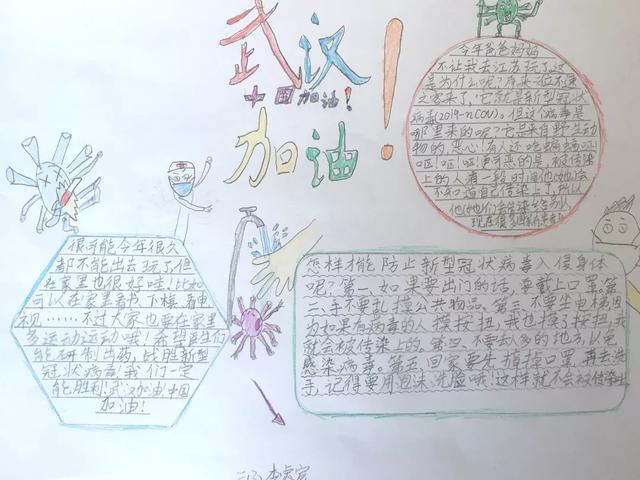 武汉
中国加油！
加油！
今年爸爸妈妈
不让我去江苏玩了，这
是为什么呢？原来一位不速
之客来了，它就是新型冠状
病毒(2019-nCoV)。但这病毒是
哪里来的呢？它是来自野生动
物的，恶心！有人还吃蝙蝠
呕！呕！呕！更可恶的是，被传染
上的人有一段时间他(她)会
不知道自己传染上了，所以
他(她)们会传染给别人，
很可能今年很久
都不能出去玩了，但
在家里也很好哇！比如
可以在家里看书、下棋、看电
视……不过大家也要在家里
多运动运动哦！希望医生们
能研制出药，战胜新型
冠状病毒！我们一定
能胜利！武汉加油！中国
加油！
怎样才能防止新型冠状病毒入侵身体
呢？第一、如果要出门的话，要戴上口罩。第
二、手不要乱摸公共物品。第三、不要坐电梯，因
为如果有病毒的人摸按扭，我也摸了按扭，
就会被传染上的。第四、不要去人多的地方，以免
感染病毒。第五、回家要先摘掉口罩，再去洗
手，记得要用泡沫洗脸哦！这样就不会被传染